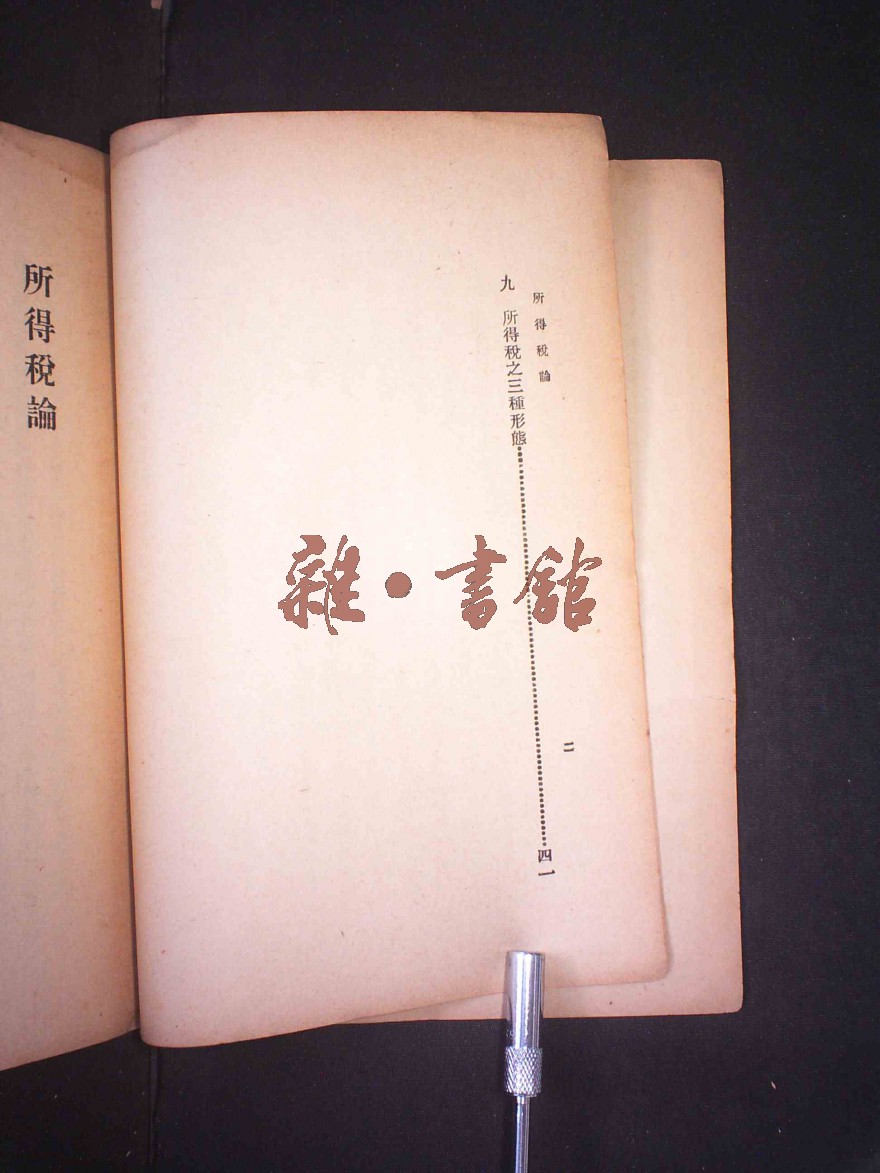 所得稅論
二
九　所得稅之三種形態……………………四一
所得稅論
雜・書館